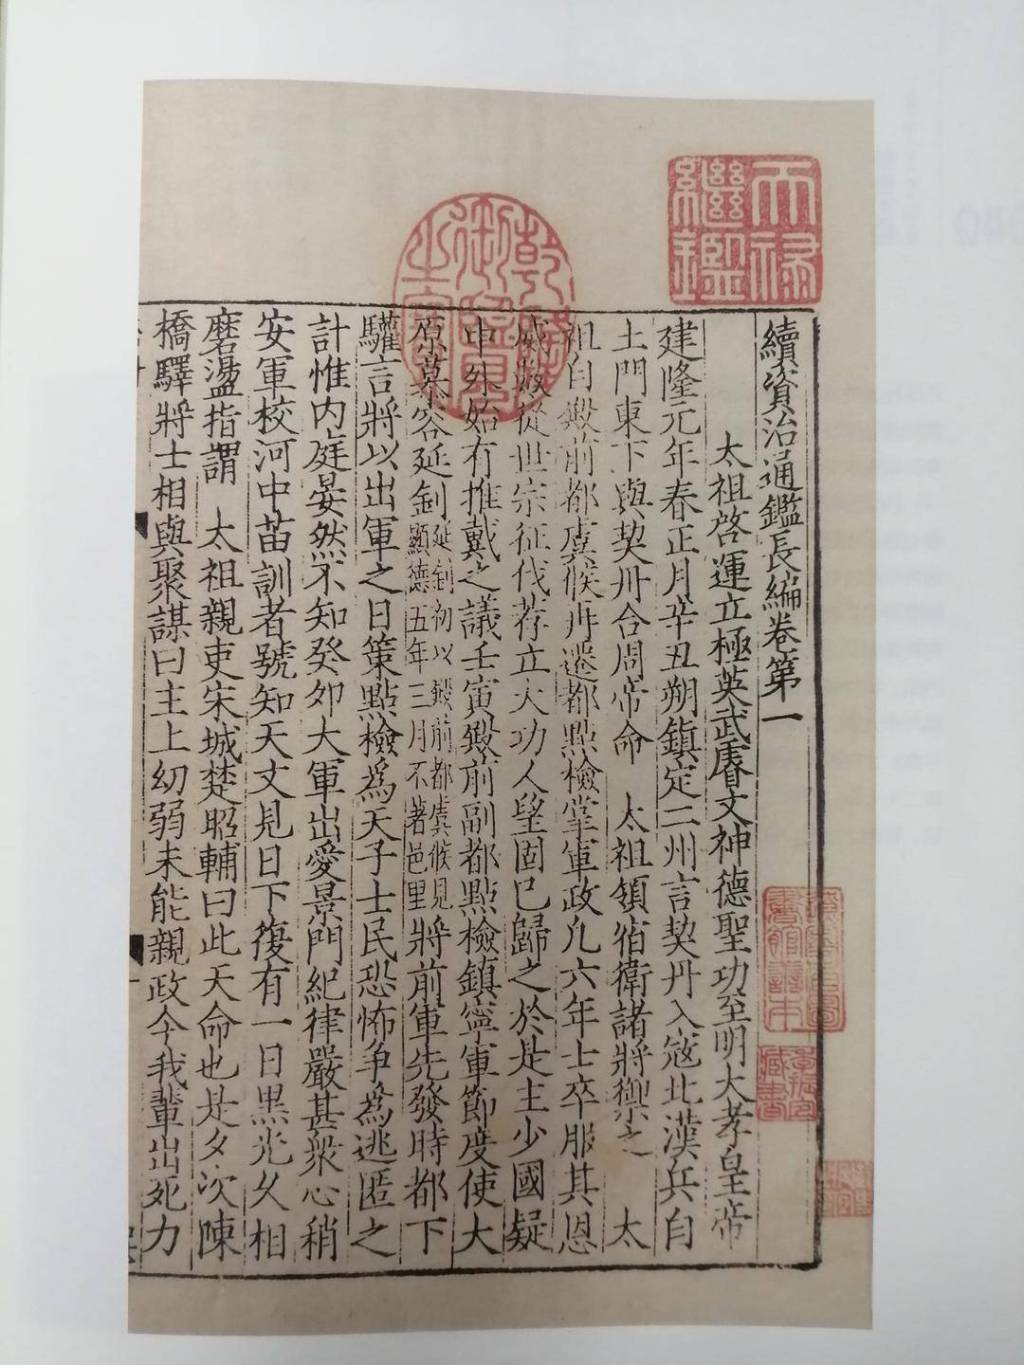 天祿繼鑑
乾隆御覽之寶
續資治通鑑長編卷第一
太祖啓運立極英武睿文神德聖功至明大孝皇帝
建隆元年春正月辛丑朔鎮定二州言契丹入寇北漢兵自
土門東下與契丹合周帝命 太祖領宿衛諸將禦之 太
祖自殿前都虞候再遷都點檢掌軍政凡六年士卒服其恩
威數從世宗征伐荐立大功人望固已歸之於是主少國疑
中外始有推戴之議壬寅殿前副都點檢鎮寧軍節度使大
原慕容延釗延釗初以殿前都虞候見顯德五年三月不著邑里將前軍先發時都下
驩言將以出軍之日策點檢爲天子士民恐怖爭爲逃匿之
計惟内庭晏然不知癸卯大軍出愛景門紀律嚴甚衆心稍
安軍校河中苗訓者號知天文見日下復有一日黑光久相
磨盪指謂 太祖親吏宋城楚昭輔曰此天命也是夕次陳
橋驛將士相與聚謀曰主上幼弱未能親政今我輩出死力